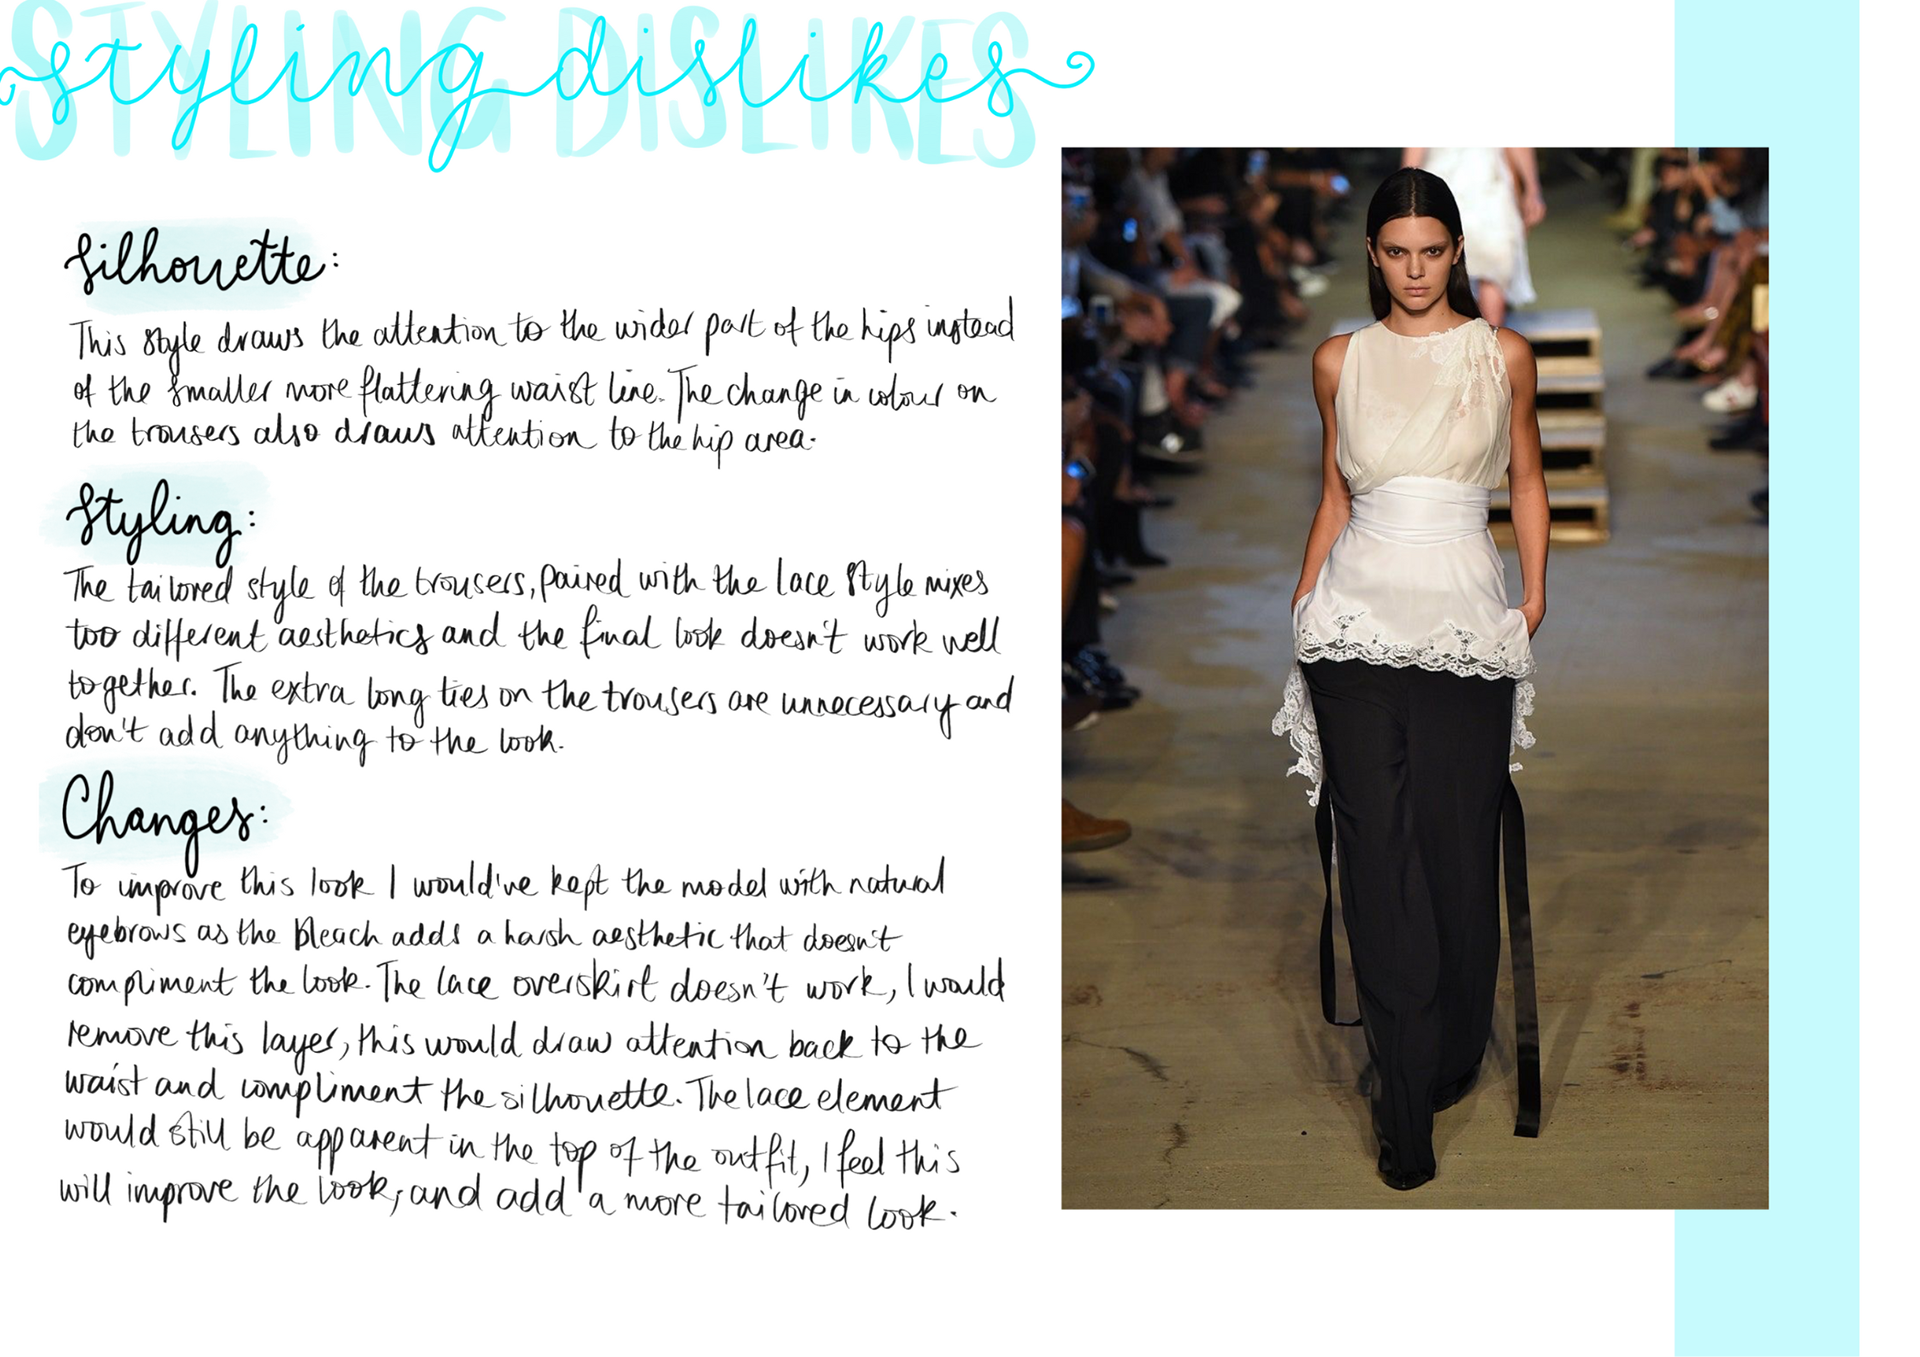 STYLING DISLIKES
styling dislikes
Silhouette:
This style draws the attention to the wider part of the hips instead
of the smaller more flattering waist line. The change in colour on
the trousers also draws attention to the hip area.
Styling:
The tailored style of the trousers, paired with the lace style mixes
too different aesthetics and the final look doesn't work well
together. The extra long ties on the trousers are unnecessary and
don't add anything to the look.
Changes:
To improve this look I would've kept the model with natural
eyebrows as the bleach adds a harsh aesthetic that doesn't
compliment the look. The lace overskirt doesn't work, I would
remove this layer, this would draw attention back to the
waist and compliment the silhouette. The lace element
would still be apparent in the top of the outfit, I feel this
will improve the look, and add a more tailored look.